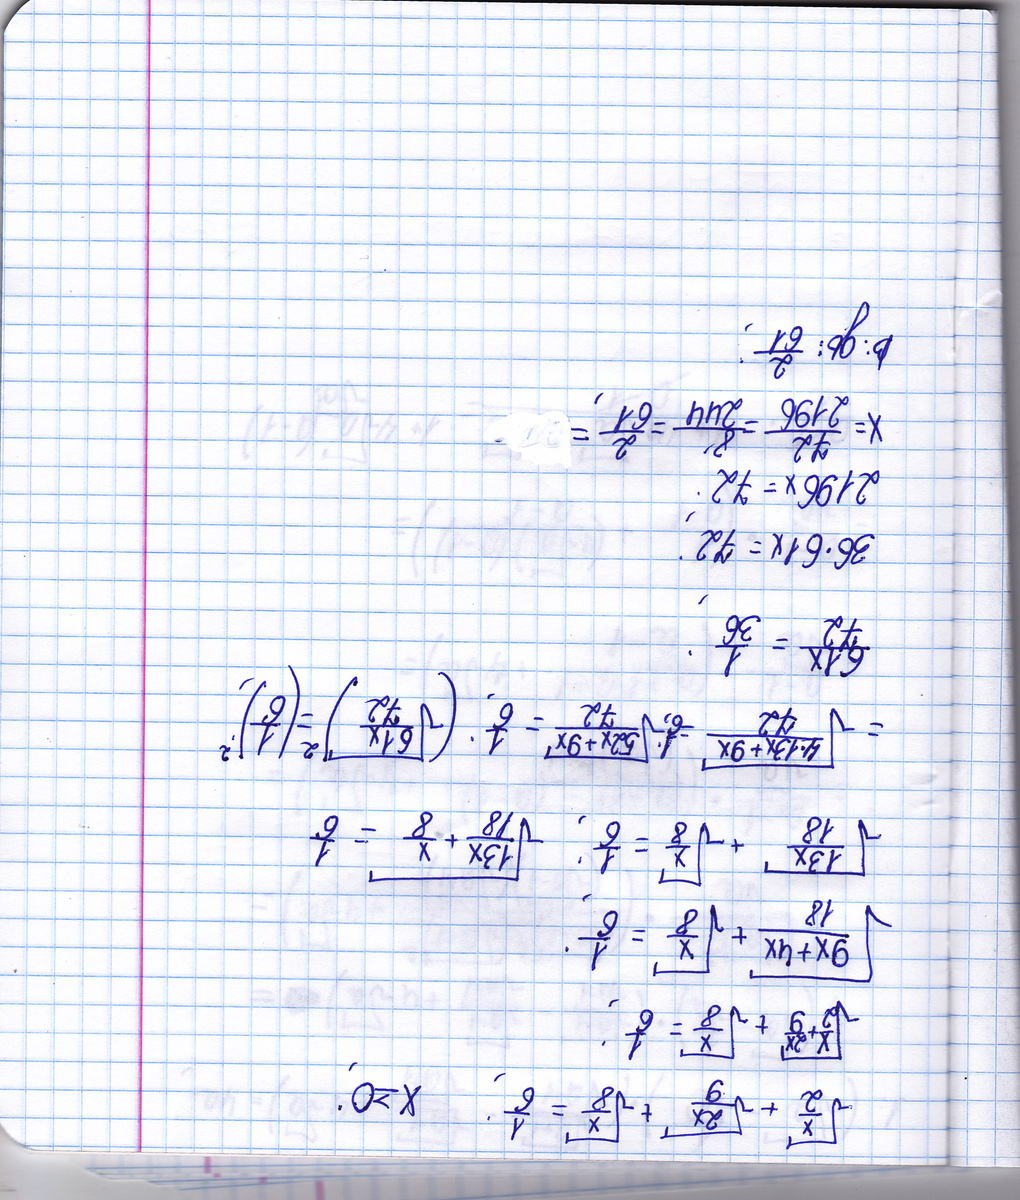 √(x/2) + √(2x/9) + √(x/8) = 1/6; x ≥ 0;
√(x/2 + 2x/9) + √(x/8) = 1/6;
√((9x+4x)/18) + √(x/8) = 1/6;
√(13x/18) + √(x/8) = 1/6; √(13x/18 + x/8) = 1/6
= √((4·13x+9x)/72) = 1/6; √((52x+9x)/72) = 1/6; (√(61x/72))² = (1/6)²;
61x/72 = 1/36;
36·61x = 72;
2196x = 72;
x = 72/2196 = 8/244 = 2/61 =
2/61;